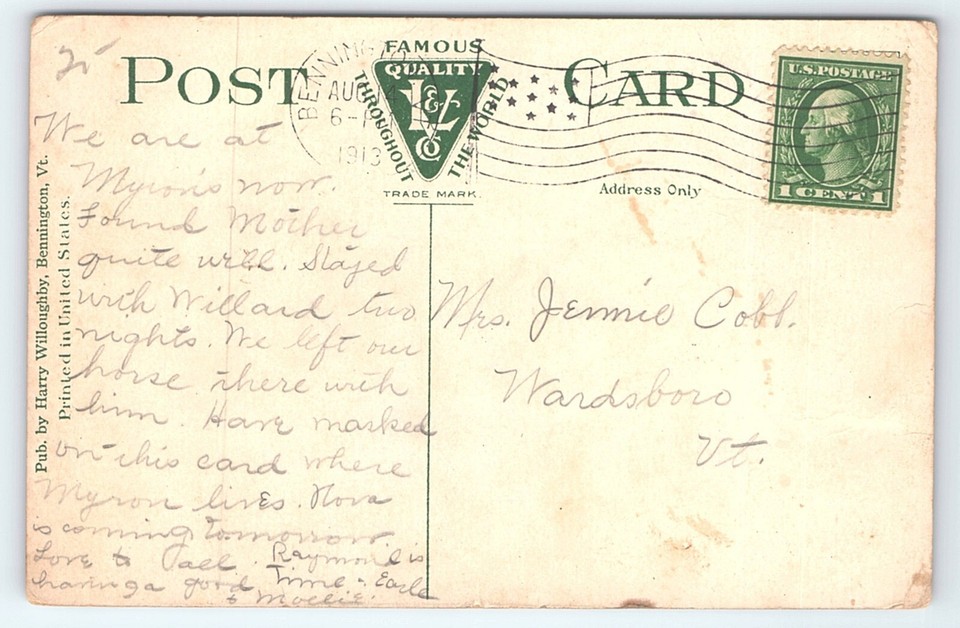 21
POST CARD
FAMOUS
QUALITY
THROUGHOUT THE WORLD
TRADE MARK.
BENNINGTON
AUG
6-
1913
U.S. POSTAGE
1 CENT 1
Address Only
Pub. by Harry Willoughby, Bennington, Vt.
Printed in United States.
We are at
Myron's now.
Found Mother
quite well. Stayed
with Willard two
nights. We left our
horse there with
him. Have marked
on this card where
Myron lives. Nova
is coming tomorrow
Love to all. Raymond is
having a good time. Earle
& Mollie.
Mrs. Jennie Cobb.
Wardsboro
Vt.